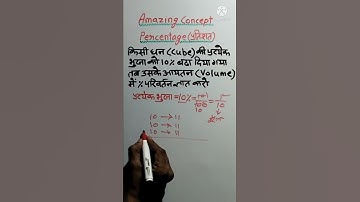 Amazing Concept
Percentage (प्रतिशत)
किसी घन (Cube) की प्रत्येक
भुजा को 10% बढ़ा दिया गया
तब उसके आयतन (Volume)
में % परिवर्तन ज्ञात करो
प्रत्येक भुजा = 10% =
10 → 11
10 → 11
10 → 11